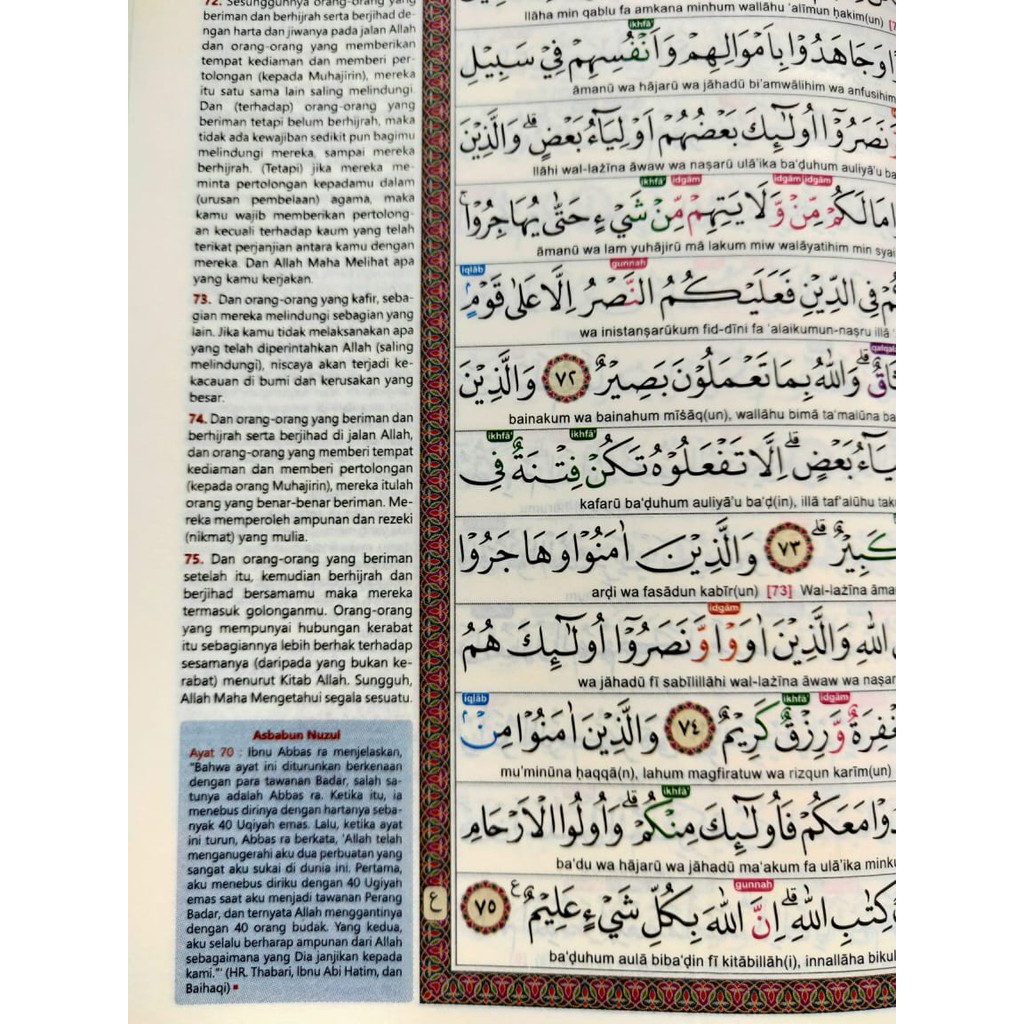 72. Sesungguhnya orang-orang yang
beriman dan berhijrah serta berjihad de-
ngan harta dan jiwanya pada jalan Allah
dan orang-orang yang memberikan
tempat kediaman dan memberi per-
tolongan (kepada Muhajirin), mereka
itu satu sama lain saling melindungi.
Dan (terhadap) orang-orang yang
beriman tetapi belum berhijrah, maka
tidak ada kewajiban sedikit pun bagimu
melindungi mereka, sampai mereka
berhijrah. (Tetapi) jika mereka me-
minta pertolongan kepadamu dalam
(urusan pembelaan) agama, maka
kamu wajib memberikan pertolong-
an kecuali terhadap kaum yang telah
terikat perjanjian antara kamu dengan
mereka. Dan Allah Maha Melihat apa
yang kamu kerjakan.
73. Dan orang-orang yang kafir, seba-
gian mereka melindungi sebagian yang
lain. Jika kamu tidak melaksanakan apa
yang telah diperintahkan Allah (saling
melindungi), niscaya akan terjadi ke-
kacauan di bumi dan kerusakan yang
besar.
74. Dan orang-orang yang beriman dan
berhijrah serta berjihad di jalan Allah,
dan orang-orang yang memberi tempat
kediaman dan memberi pertolongan
(kepada orang Muhajirin), mereka itulah
orang yang benar-benar beriman. Me-
reka memperoleh ampunan dan rezeki
(nikmat) yang mulia.
75. Dan orang-orang yang beriman
setelah itu, kemudian berhijrah dan
berjihad bersamamu maka mereka
termasuk golonganmu. Orang-orang
yang mempunyai hubungan kerabat
itu sebagiannya lebih berhak terhadap
sesamanya (daripada yang bukan ke-
rabat) menurut Kitab Allah. Sungguh,
Allah Maha Mengetahui segala sesuatu.
Asbabun Nuzul
Ayat 70 : Ibnu Abbas ra menjelaskan,
"Bahwa ayat ini diturunkan berkenaan
dengan para tawanan Badar, salah sa-
tunya adalah Abbas ra. Ketika itu, ia
menebus dirinya dengan hartanya seba-
nyak 40 Uqiyah emas. Lalu, ketika ayat
ini turun, Abbas ra berkata, 'Allah telah
menganugerahi aku dua perbuatan yang
sangat aku sukai di dunia ini. Pertama,
aku menebus diriku dengan 40 Ugiyah
emas saat aku menjadi tawanan Perang
Badar, dan ternyata Allah menggantinya
dengan 40 orang budak. Yang kedua,
aku selalu berharap ampunan dari Allah
sebagaimana yang Dia janjikan kepada
kami.'" (HR. Thabari, Ibnu Abi Hatim, dan
Baihaqi)
llāha min qablu fa amkana minhum wallāhu 'alīmun ḥakīm(un) [7
ikhfā'
وَجَاهَدُوْا بِاَمْوَالِهِمْ وَاَنْفُسِهِمْ فِيْ سَبِيْلِ
āmanū wa hājarū wa jāhadū bi'amwālihim wa anfusihim
وَّنَصَرُوْٓا اُولٰۤىِٕكَ بَعْضُهُمْ اَوْلِيَاۤءُ بَعْضٍۗ وَالَّذِيْنَ
llāhi wal-lażīna āwaw wa naṣarū ulā'ika ba'ḍuhum auliyā'u ba
ikhfā' idgām idgām idgām
مَا لَكُمْ مِّنْ وَّلَايَتِهِمْ مِّنْ شَيْءٍ حَتّٰى يُهَاجِرُوْاۚ
āmanū wa lam yuhājirū mā lakum miw walāyatihim min syai
iqlāb gunnah
فِى الدِّيْنِ فَعَلَيْكُمُ النَّصْرُ اِلَّا عَلٰى قَوْمٍۢ
wa inistanṣarūkum fid-dīni fa 'alaikumun-naṣru illā
وَاللّٰهُ بِمَا تَعْمَلُوْنَ بَصِيْرٌ ٧٢ وَالَّذِيْنَ
bainakum wa bainahum mīṡāq(un), wallāhu bimā ta'malūna ba
ikhfā' ikhfā'
بَعْضٍۗ اِلَّا تَفْعَلُوْهُ تَكُنْ فِتْنَةٌ فِى
kafarū ba'ḍuhum auliyā'u ba'ḍ(in), illā taf'alūhu tak
كَبِيْرٌۗ ٧٣ وَالَّذِيْنَ اٰمَنُوْا وَهَاجَرُوْا
arḍi wa fasādun kabīr(un) [73] Wal-lażīna āma
idgām
اللّٰهِ وَالَّذِيْنَ اٰوَوْا وَّنَصَرُوْٓا اُولٰۤىِٕكَ هُمُ
wa jāhadū fī sabīlillāhi wal-lażīna āwaw wa naṣar
iqlāb ikhfā' idgām
وَّرِزْقٌ كَرِيْمٌ ٧٤ وَالَّذِيْنَ اٰمَنُوْا مِنْۢ
mu'minūna ḥaqqā(n), lahum magfiratuw wa rizqun karīm(un)
ikhfā'
مَعَكُمْ فَاُولٰۤىِٕكَ مِنْكُمْۗ وَاُولُوا الْاَرْحَامِ
ba'du wa hājarū wa jāhadū ma'akum fa ulā'ika mink
gunnah
كِتٰبِ اللّٰهِۗ اِنَّ اللّٰهَ بِكُلِّ شَيْءٍ عَلِيْمٌ ٧٥
ع
ba'ḍuhum aulā biba'ḍin fī kitābillāh(i), innallāha bikul